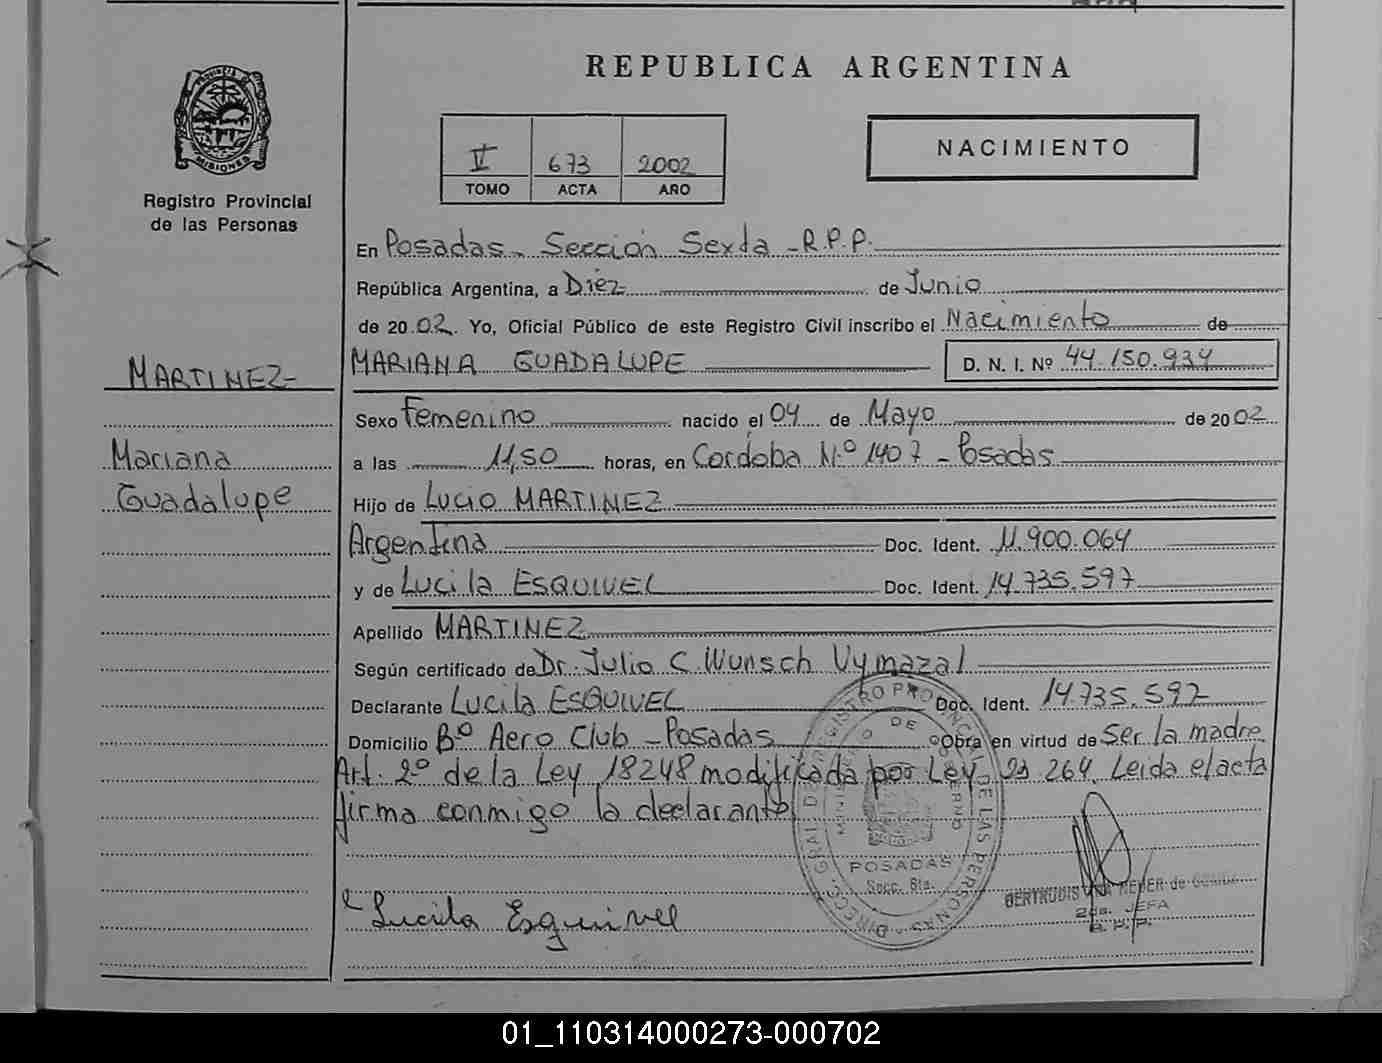 REPUBLICA ARGENTINA
V 673 2002
TOMO ACTA AÑO
NACIMIENTO
MISIONES
Registro Provincial
de las Personas
MARTINEZ-
Mariana
Guadalupe
En Posadas - Sección Sexta - R.P.P.
República Argentina, a Diez de Junio
de 2002. Yo, Oficial Público de este Registro Civil inscribo el Nacimiento de
MARIANA GUADALUPE D. N. I. Nº 44.150.934
Sexo Femenino nacido el 04 de Mayo de 2002
a las 11,50 horas, en Cordoba N.º 1407 - Posadas
Hijo de Lucio MARTINEZ
Argentina Doc. Ident. 11.900.064
y de Lucila ESQUIVEL Doc. Ident. 14.735.597
Apellido MARTINEZ
Según certificado de Dr. Julio C. Wunsch Vymazal
Declarante Lucila ESQUIVEL Doc. Ident. 14.735.597
Domicilio Bº Aero Club - Posadas Obra en virtud de Ser la madre
Art. 2º de la Ley 18248 modificada por Ley 23.264. Leida el acta
firma conmigo la declarante
DIRECC. GRAL. DE REGISTRO PROVINCIAL DE LAS PERSONAS
MINISTERIO DE GOBIERNO
POSADAS
Secc. 6ta.
Lucila Esquivel
GERTRUDIS de
2da. JEFA
R.P.P.
01_110314000273-000702